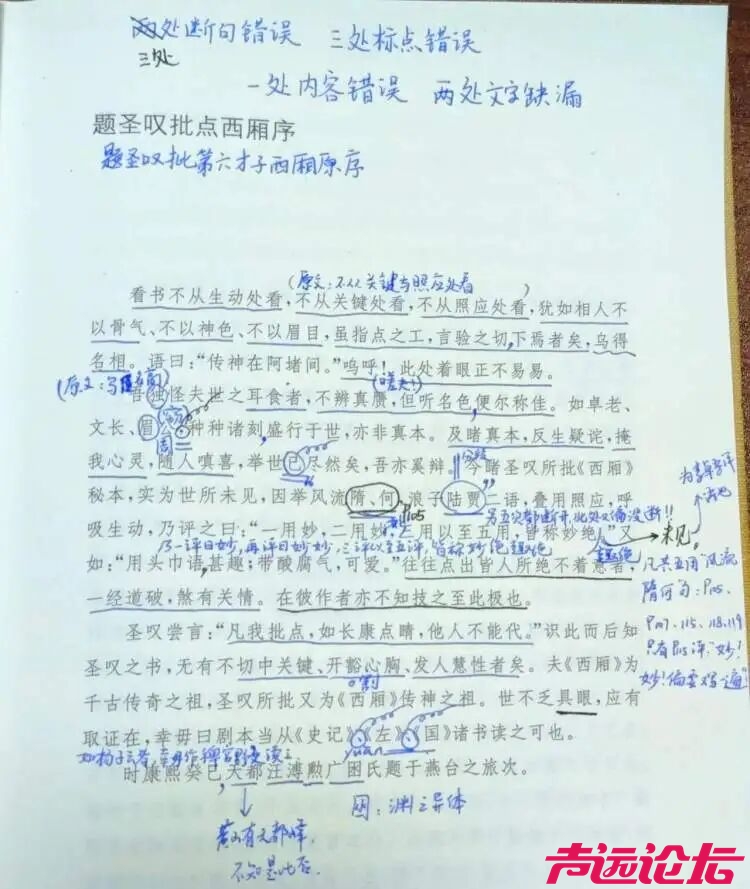 两处断句错误 三处标点错误
三处
一处内容错误 两处文字缺漏
题圣叹批点西厢序
题圣叹批第六才子西厢原序
(原文:不从关键与照应处看)
看书不从生动处看,不从关键处看,不从照应处看,犹如相人不
以骨气、不以神色、不以眉目,虽指点之工,言验之切下焉者矣,乌得
名相。语曰:“传神在阿堵间。”呜呼!此处着眼正不易易。
吾独怪夫世之耳食者,不辨真赝,但听名色,便尔称佳。如卓老、
文长、眉公种种诸刻盛行于世,亦非真本。及睹真本,反生疑诧,掩
我心灵,随人嗔喜,举世已尽然矣,吾亦奚辩。今睹圣叹所批《西厢》
秘本,实为世所未见,因举风流隋、何,浪子陆贾二语,叠用照应,呼
P105
吸生动,乃评之曰:“一用妙,二用妙,三用以至五用,皆称妙绝”,又
乃一评曰妙,再评曰妙妙,三评以至五评,皆称妙绝趣绝
如:“用头巾语甚趣;带酸腐气,可爱。”往往点出皆人所绝不着意者,
一经道破,煞有关情。在彼作者亦不知技之至此极也。
圣叹尝言:“凡我批点,如长康点睛,他人不能代。”识此而后知
圣叹之书,无有不切中关键、开豁心胸、发人慧性者矣。夫《西厢》为
割
千古传奇之祖,圣叹所批又为《西厢》传神之祖。世不乏具眼,应有
取证在,幸毋曰剧本当从《史记》《左》《国》诸书读之可也。
yuān
时康熙癸巳天都汪溥勲广囦氏题于燕台之旅次。
未见
凡共五用“风流
隋何”句:P105、
P107、115、118、119
只有P115评“妙!
妙!偏要写一遍”
囦:渊之异体
黄山有天都峰
不知是此否.
声远论坛